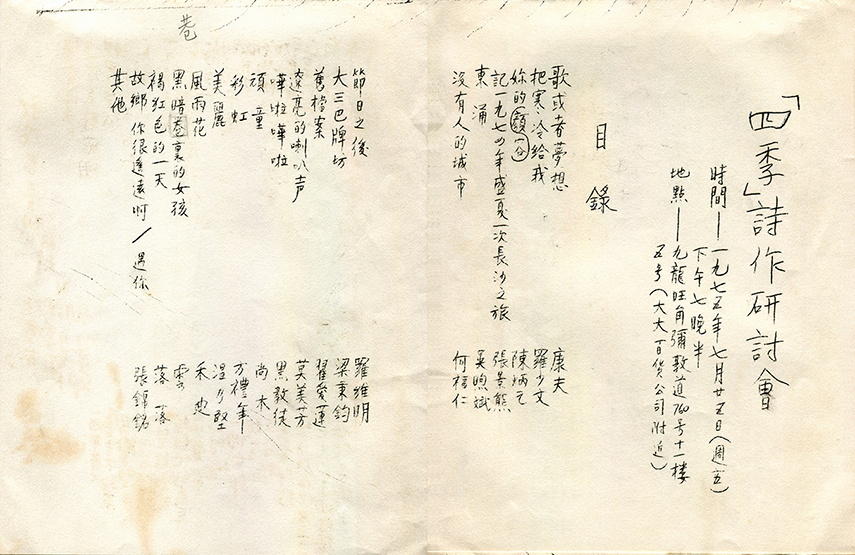 「四季」詩作研討會
時間——一九七五年七月廿五日(週五)
下午七晚半
地點——九龍旺角彌敦道760号十一楼
五号(大大百货公司附近)
目錄
歌或者夢想 康夫
把寒冷给我 羅少文
妳的(顏容) 陳炳元
記一九七四年盛夏一次長沙之旅 張景熊
東涌 吳煦斌
沒有人的城市 何福仁
節日之後 羅維明
大三巴牌坊 梁秉鈞
舊檔案 翟愛蓮
嘹亮的喇叭声 莫美芳
嘩啦嘩啦 黑教徒
頑童 尚木
彩虹 方禮年
美麗 温乃堅
風雨花 禾迪
黑暗巷裏的女孩 雲
褐红色的一天 落落
故鄉 你很遙遠啊/遇你 張錦銘
其他
巷